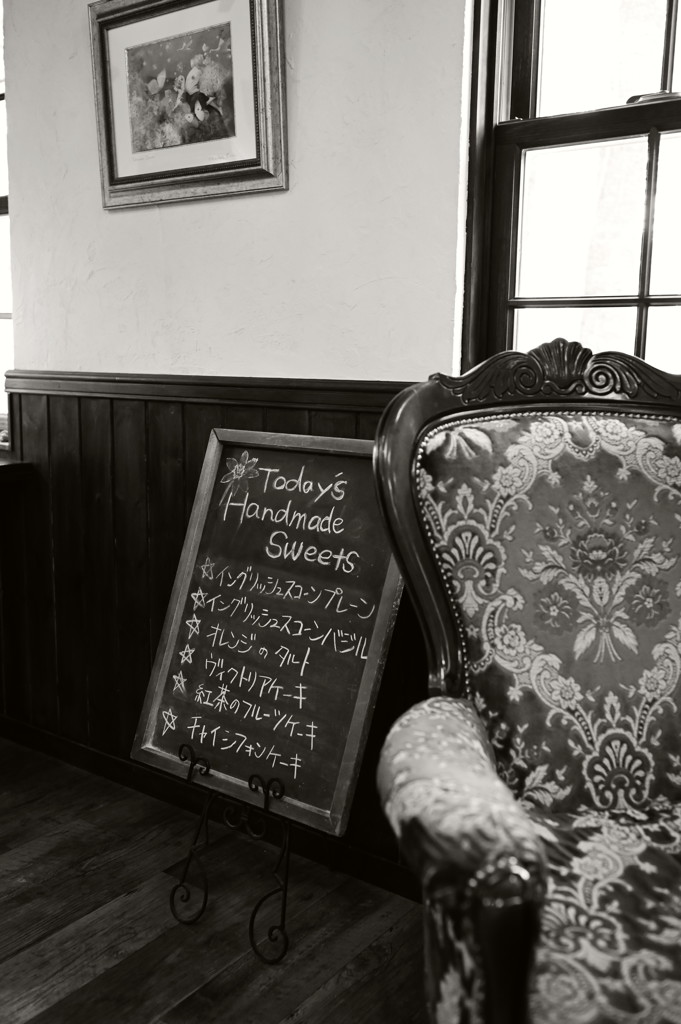 Today's
Handmade
Sweets
☆イングリッシュスコーンプレーン
☆イングリッシュスコーンバジル
☆オレンジのタルト
☆ヴィクトリアケーキ
☆紅茶のフルーツケーキ
☆チャイシフォンケーキ